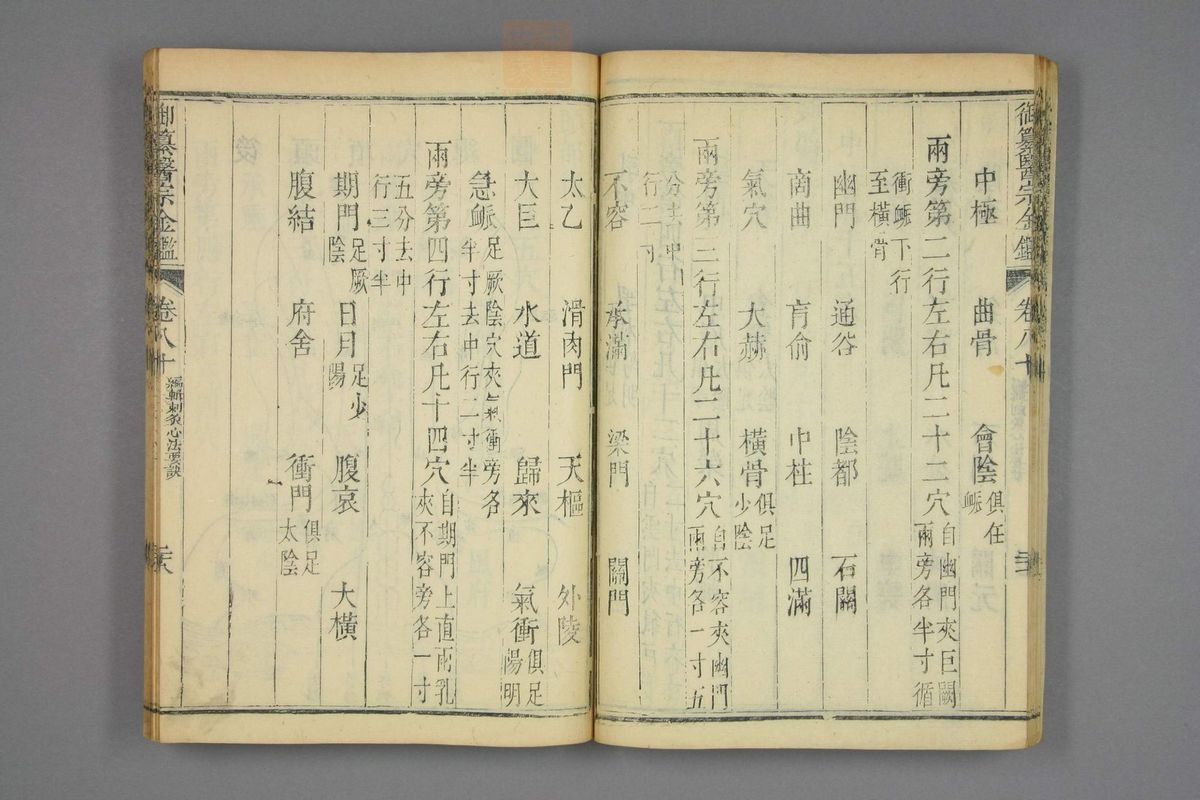 御纂醫宗金鑑 卷八十
中極 曲骨 會陰 俱任衇
兩旁第二行左右凡二十二穴 自幽門夾巨闕兩旁各半寸循
衝衇下行至橫骨
幽門 通谷 陰都 石關
商曲 肓俞 中柱 四滿
氣穴 大赫 橫骨 俱足少陰
兩旁第三行左右凡二十六穴 自不容夾幽門兩旁各一寸五
分去中行二寸
不容 承滿 梁門 關門
太乙 滑肉門 天樞 外陵
大巨 水道 歸來 氣衝 俱足陽明
急衇 足厥陰穴夾氣衝旁各半寸去中行二寸半
兩旁第四行左右凡十四穴 自期門上直兩乳夾不容旁各一寸
五分去中行三寸半
期門 足厥陰 日月 足少陽 腹哀 大橫
腹結 府舍 衝門 俱足太陰
御纂醫宗金鑑 卷八十 編輯刺灸心法要訣